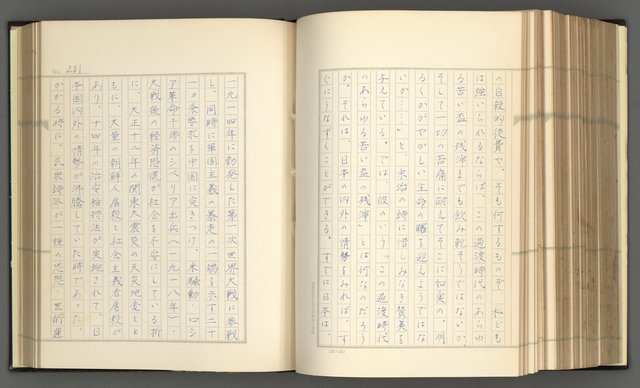 の自殺的徒費や、そも何するものぞ、私ども
は強いられるならば、この過渡時代のあらゆ
る苦い盃の残滓までも飲み乾そうではないか、
そして一切の苦痛に耐えてそこに如実の、明
るくかがやかしい生命の曙を迎えようではな
いか……」と、米治の詩に惜しみなき賛美を
与えている。では、彼のいう「この過渡時代
のあらゆる苦い盃の残滓」とは何なのだろう
か。それは、日本の内外の情勢をみれば、す
ぐにうなずくことができる。すでに日本は、
No. 201
一九一四年に勃発した第一次世界大戦に参戦
し、同時に軍国主義の暴走の一端を示す二十
一カ条要求を中国に突きつけ、米騒動、ロシ
ア革命干渉のシベリア出兵(一九一八年)、
大戦後の経済恐慌が社会を不安にしている折
に、大正十二年の関東大震災の天災地変とと
もに、大量の朝鮮人虐殺と社会主義者虐殺が
あり、十四年の治安維持法が実施されて、日
本国内外の情勢が沸騰していた時であった。
かかる時に、民衆詩派が一種の思想・芸術運